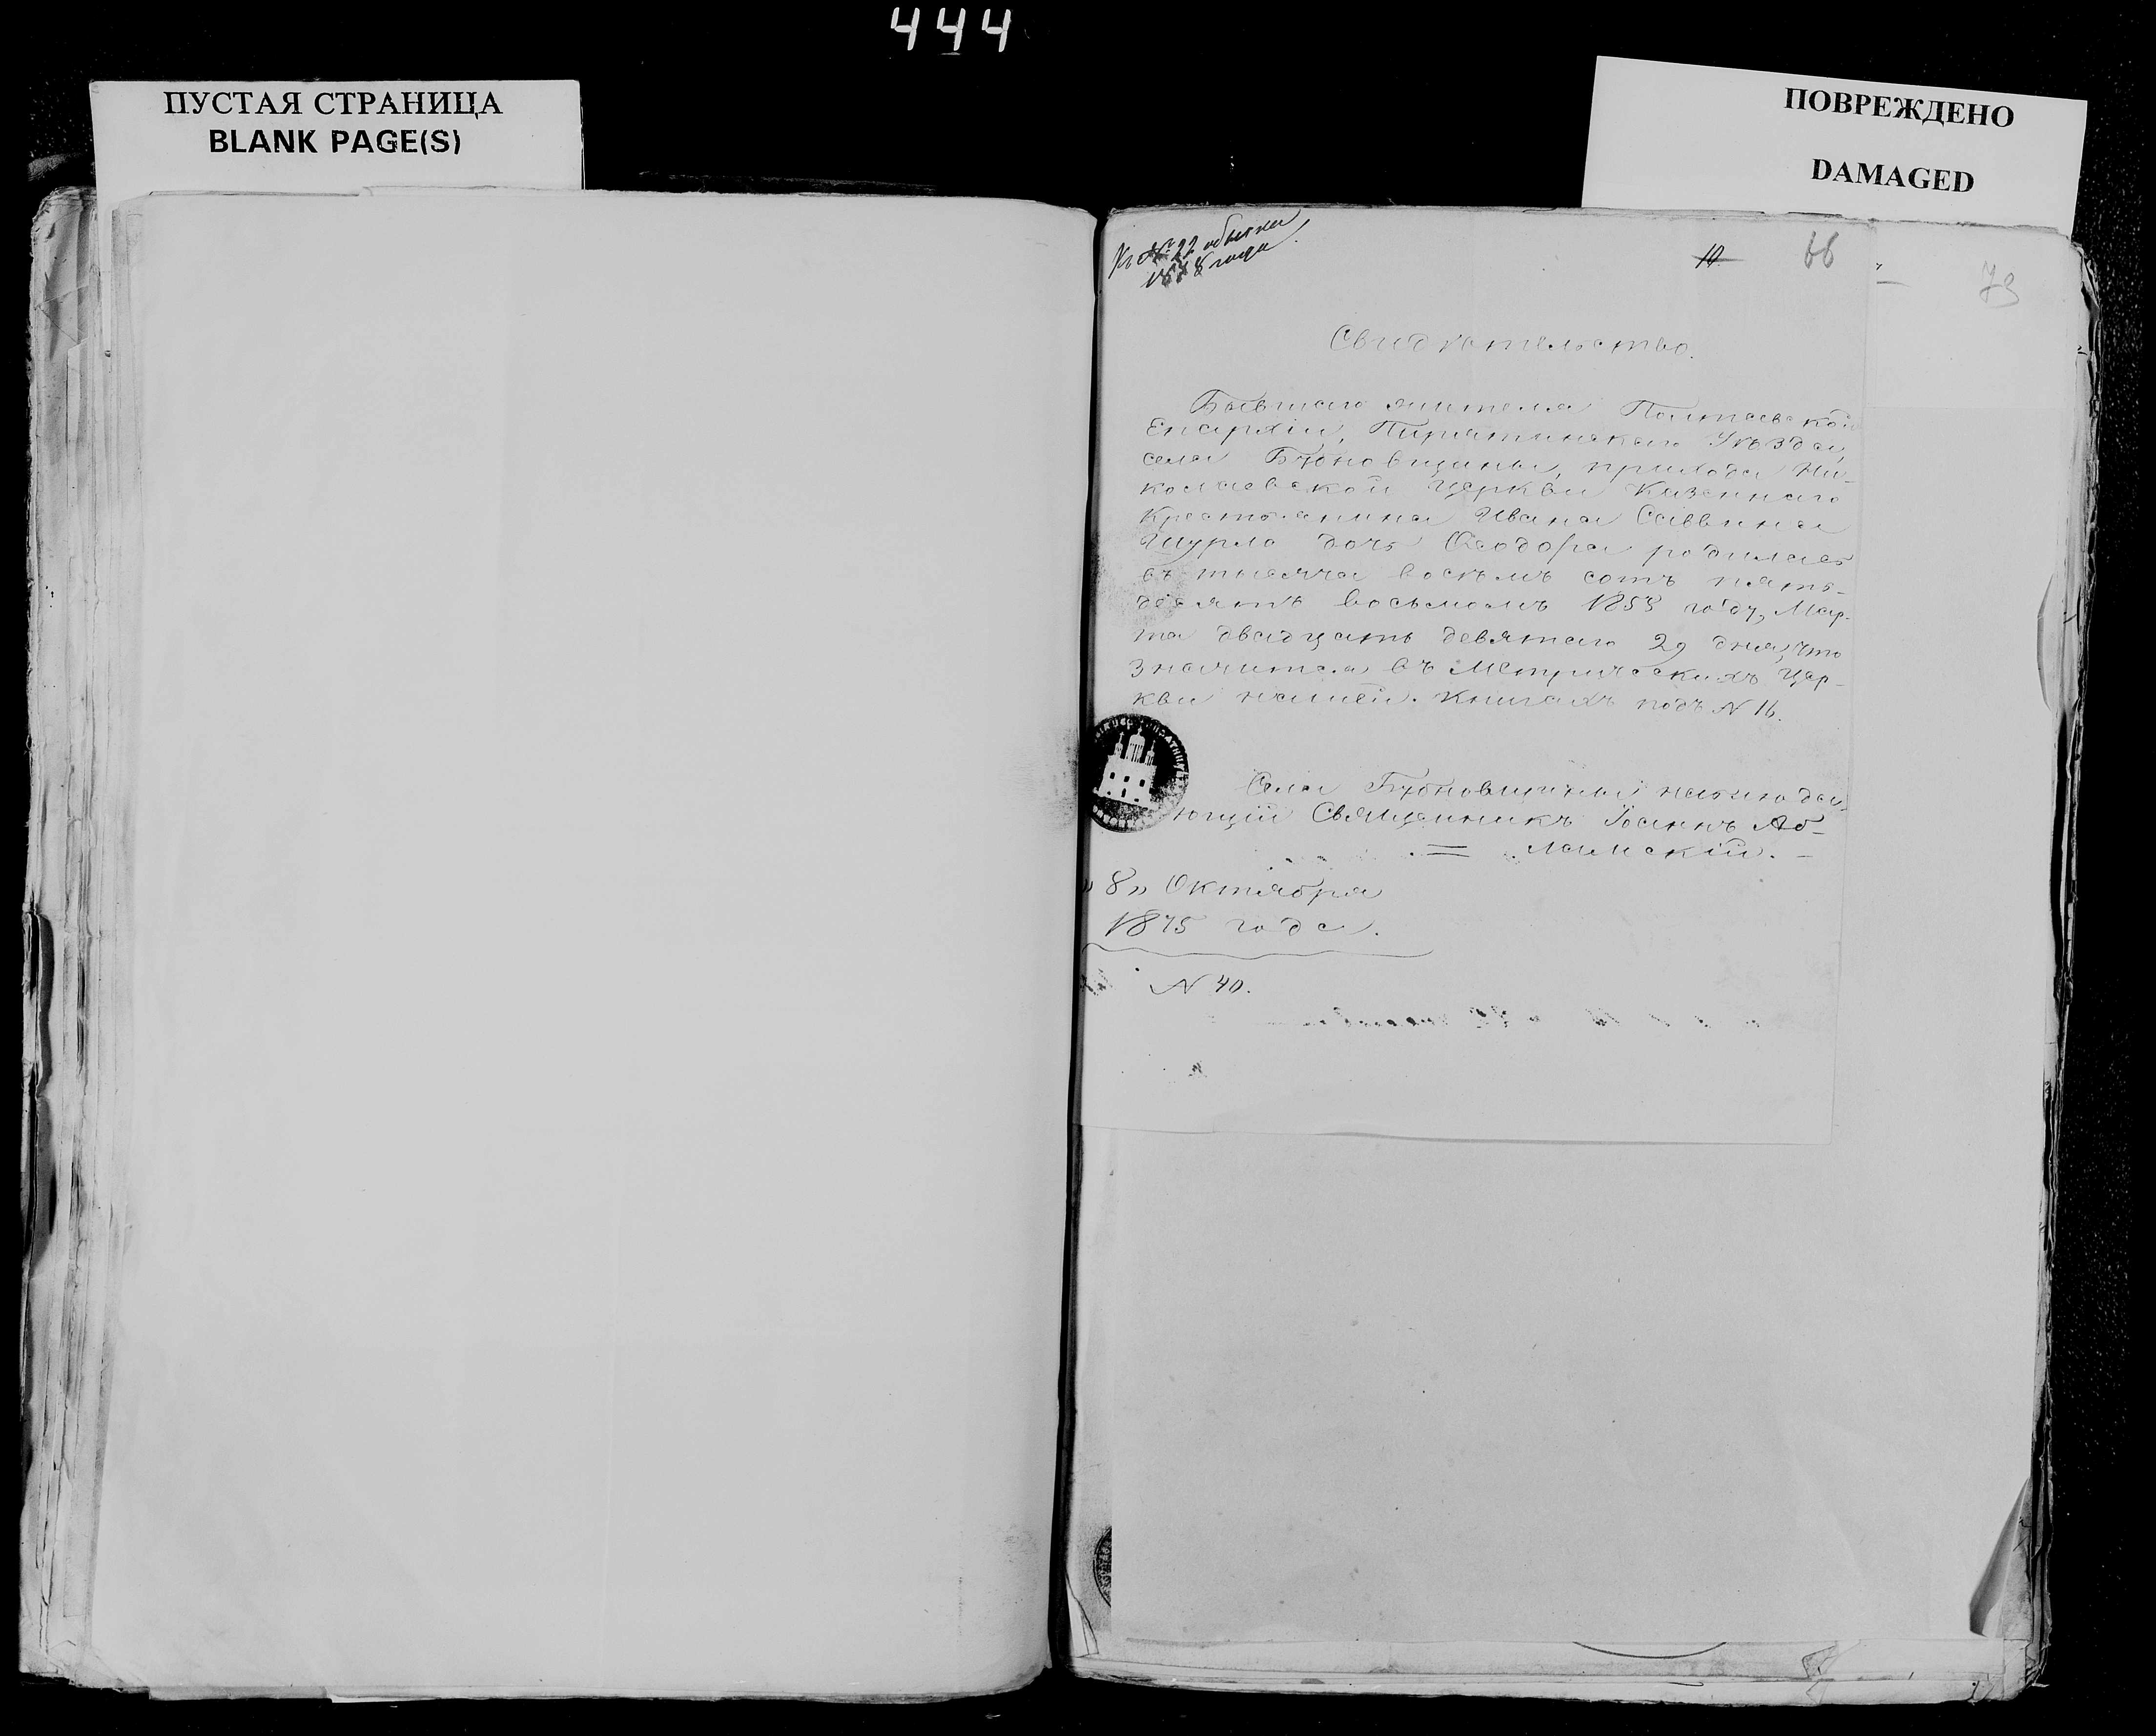 444
ПУСТАЯ СТРАНИЦА
BLANK PAGE(S)
ПОВРЕЖДЕНО
DAMAGED
Къ № 22 обыска
1878 года
10.
66
73
Свидѣтельство.
Бывшаго жителя Полтавской
Епархіи, Пирятинскаго Уѣзда,
села Бубновщины, прихода Ни-
колаевской Церкви Казеннаго
Крестьянина Ивана Саввина
Шурло дочь Ѳеодора родилась
въ тысяча восемъ сотъ пять-
десятъ восьмомъ 1858 году, Мар-
та двадцать девятаго 29 дня, что
значится въ Метрическихъ Цер-
кви нашей книгахъ подъ N 16.
Села Бубновщины наблюда-
ющій Священникъ Іоаннъ
„8„ Октября
1875 года.
N 40.